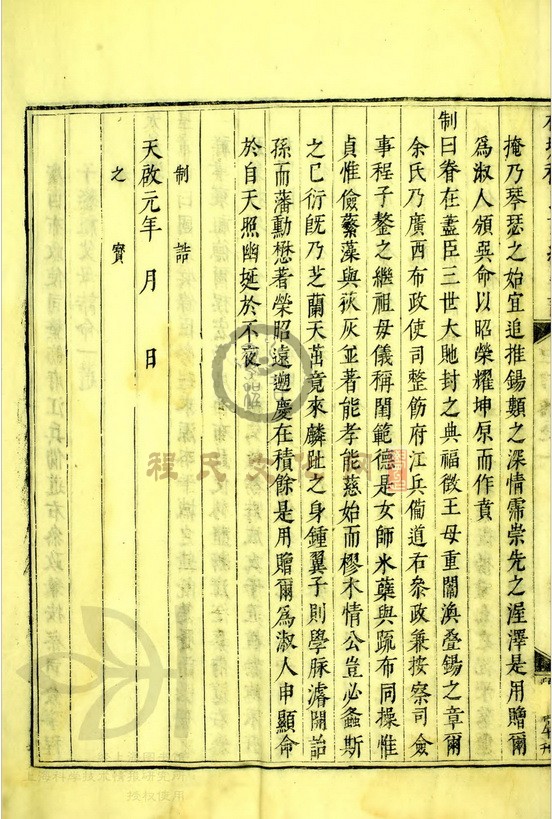 掩乃琴瑟之始宜追推錫類之深情霈崇先之渥澤是用贈爾
為淑人頒巽命以昭榮耀坤原而作賁
制曰眷在藎臣三世大貤封之典福徵王母重闈渙疊錫之章爾
余氏乃廣西布政使司整飭府江兵僃道右叅政兼按察司僉
事程子鏊之繼祖母儀稱閨範德是女師氷蘖與疏布同操惟
貞惟儉蘩藻與荻灰並著能孝能慈始而樛木情公豈必螽斯
之已衍旣乃芝蘭天茁竟來麟趾之身鍾翼子則學脉濬開詒
孫而藩勳懋著榮昭遠遡慶在積餘是用贈爾為淑人申顯命
於自天照幽埏於不夜
制誥
天啟元年 月 日
之寶
程氏文化網
授權使用